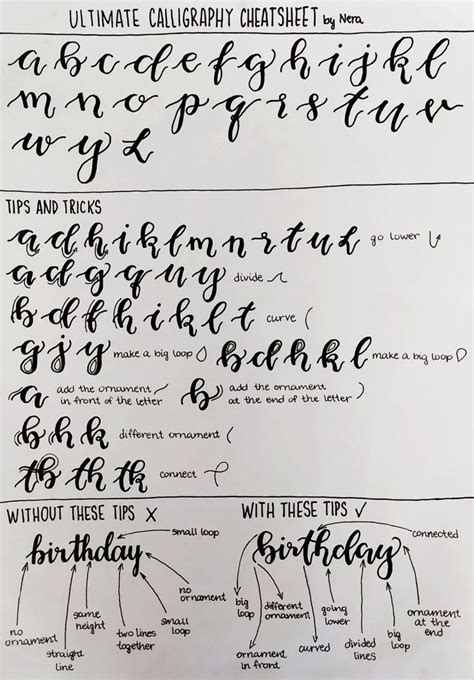 ULTIMATE CALLIGRAPHY CHEATSHEET by Nera
a b c d e f g h i j k l
m n o p q r s t u v
w y z
TIPS AND TRICKS
a d h i k l m n r t u z go lower
a d g q u y divide
b d f h i k l t curve
g j y make a big loop b d h k l make a big loop
a add the ornament
in front of the letter
b add the ornament
at the end of the letter
b h k different ornament
tb th tk connect
WITHOUT THESE TIPS X
small loop
birthday
no
ornament
same
height
no
ornament
straight
line
two lines
together
small
loop
WITH THESE TIPS ✓
connected
birthday
big
loop
different
ornament
going
lower
ornament
at the
end
ornament
in front
curved
divided
lines
big
loop